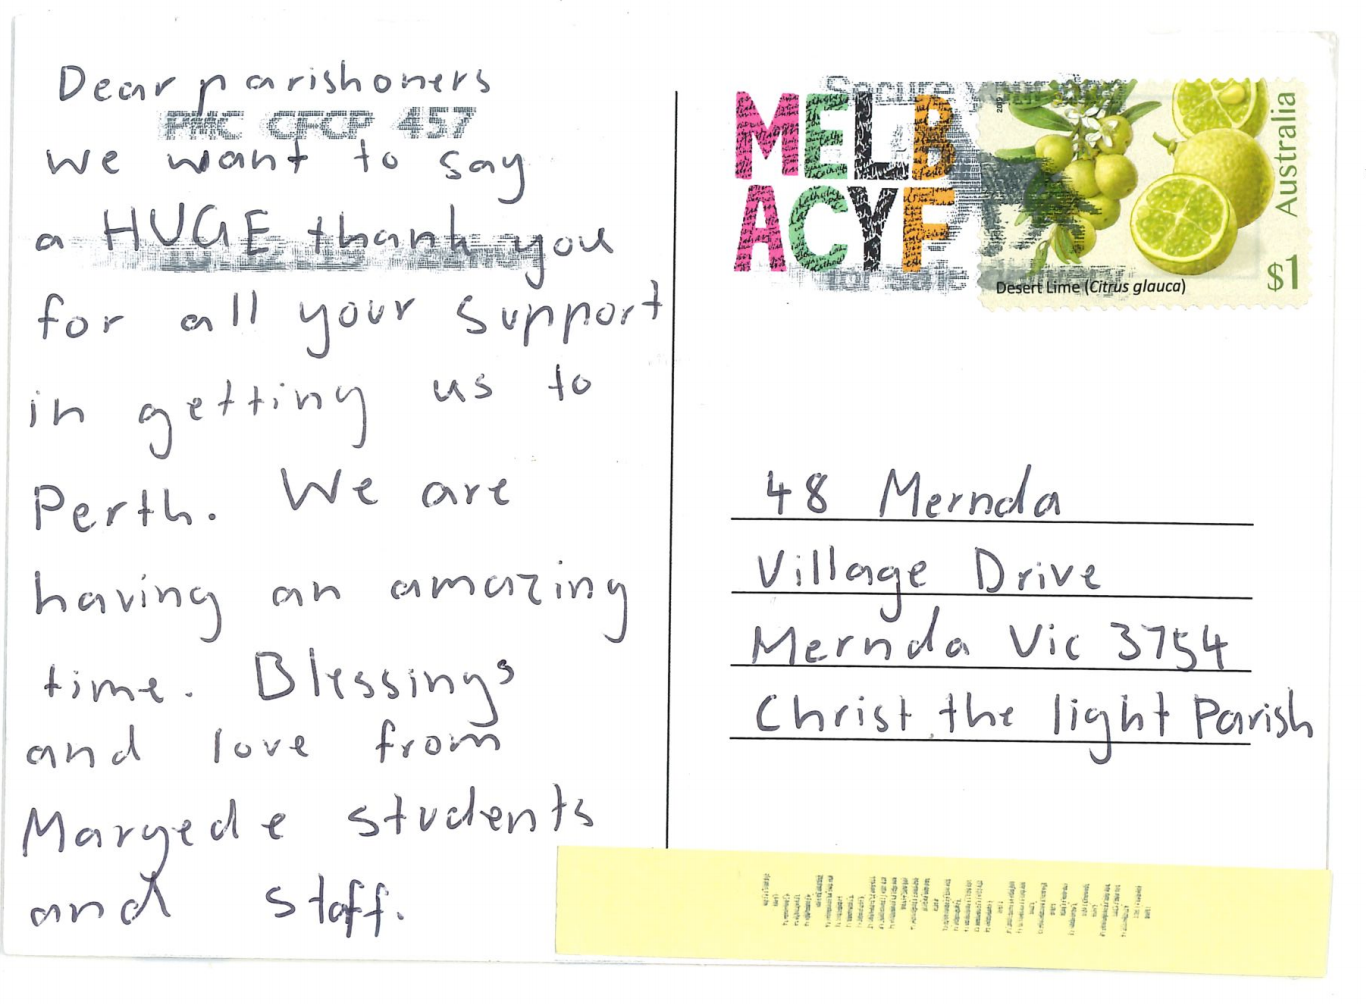 Dear parishoners
PMC CFCP 457
we want to say
a HUGE thank you
for all your support
in getting us to
Perth. We are
having an amazing
time. Blessings
and love from
Maryede students
and staff.
MELB
ACYF
Secure
for safe delivery
Australia
$1
Desert Lime (Citrus glauca)
48 Mernda
Village Drive
Mernda Vic 3754
Christ the light Parish